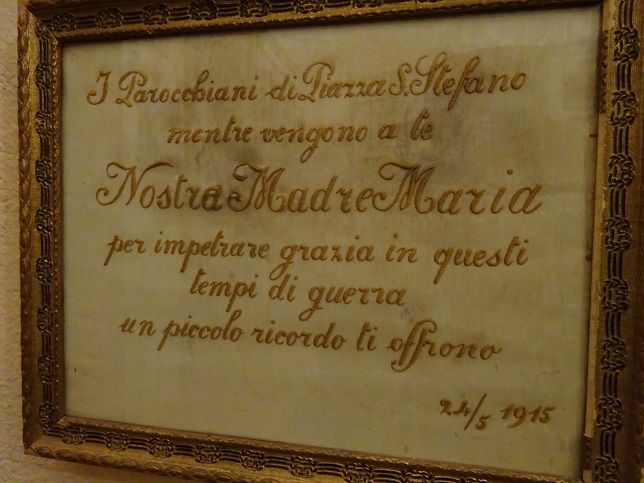 I Parocchiani di Piazza S. Stefano
mentre vengono a te
Nostra Madre Maria
per impetrare grazia in questi
tempi di guerra
un piccolo ricordo ti offrono
24/5 1915